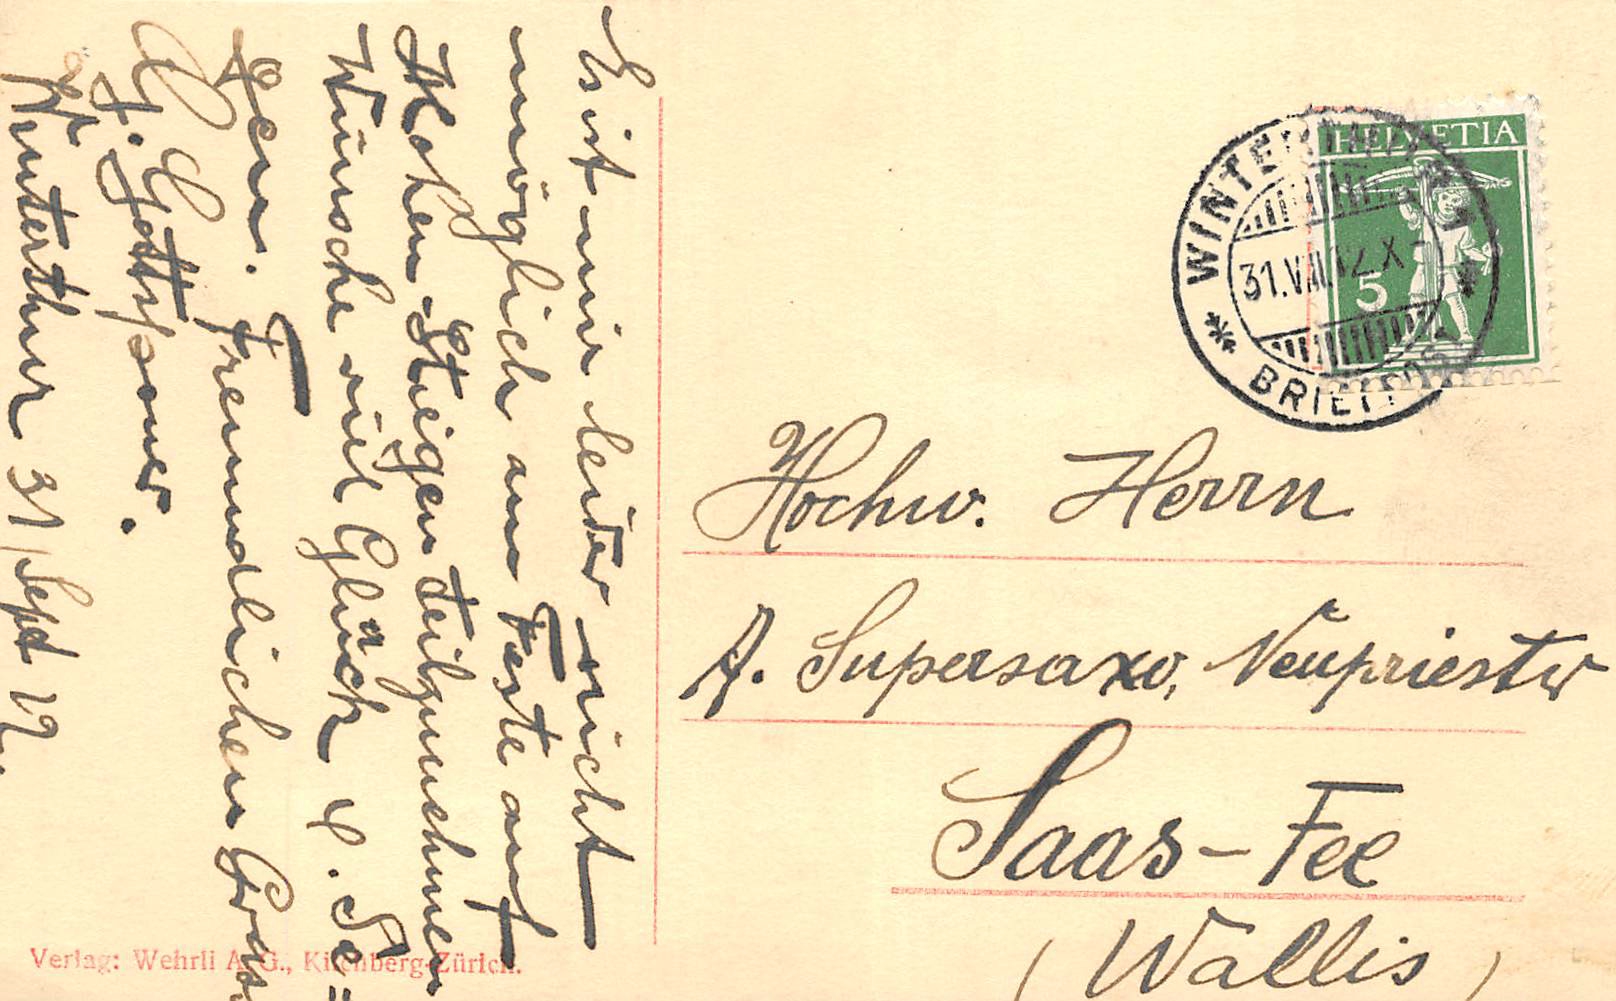 Es ist mir leider nicht
möglich am Feste auf
Hohen-Stiegen teilzunehmen
Wünsche viel Glück u. Se=
gen. Freundlichen Gruss
Winterthur 31 Sept 12.
Verlag: Wehrli A.G., Kilchberg-Zürich.
HELVETIA
5
WINTERTHUR 1
31.VIII.12.X-
BRIEFPOST
Hochw. Herrn
A. Supersaxo, Neupriester
Saas-Fee
(Wallis)